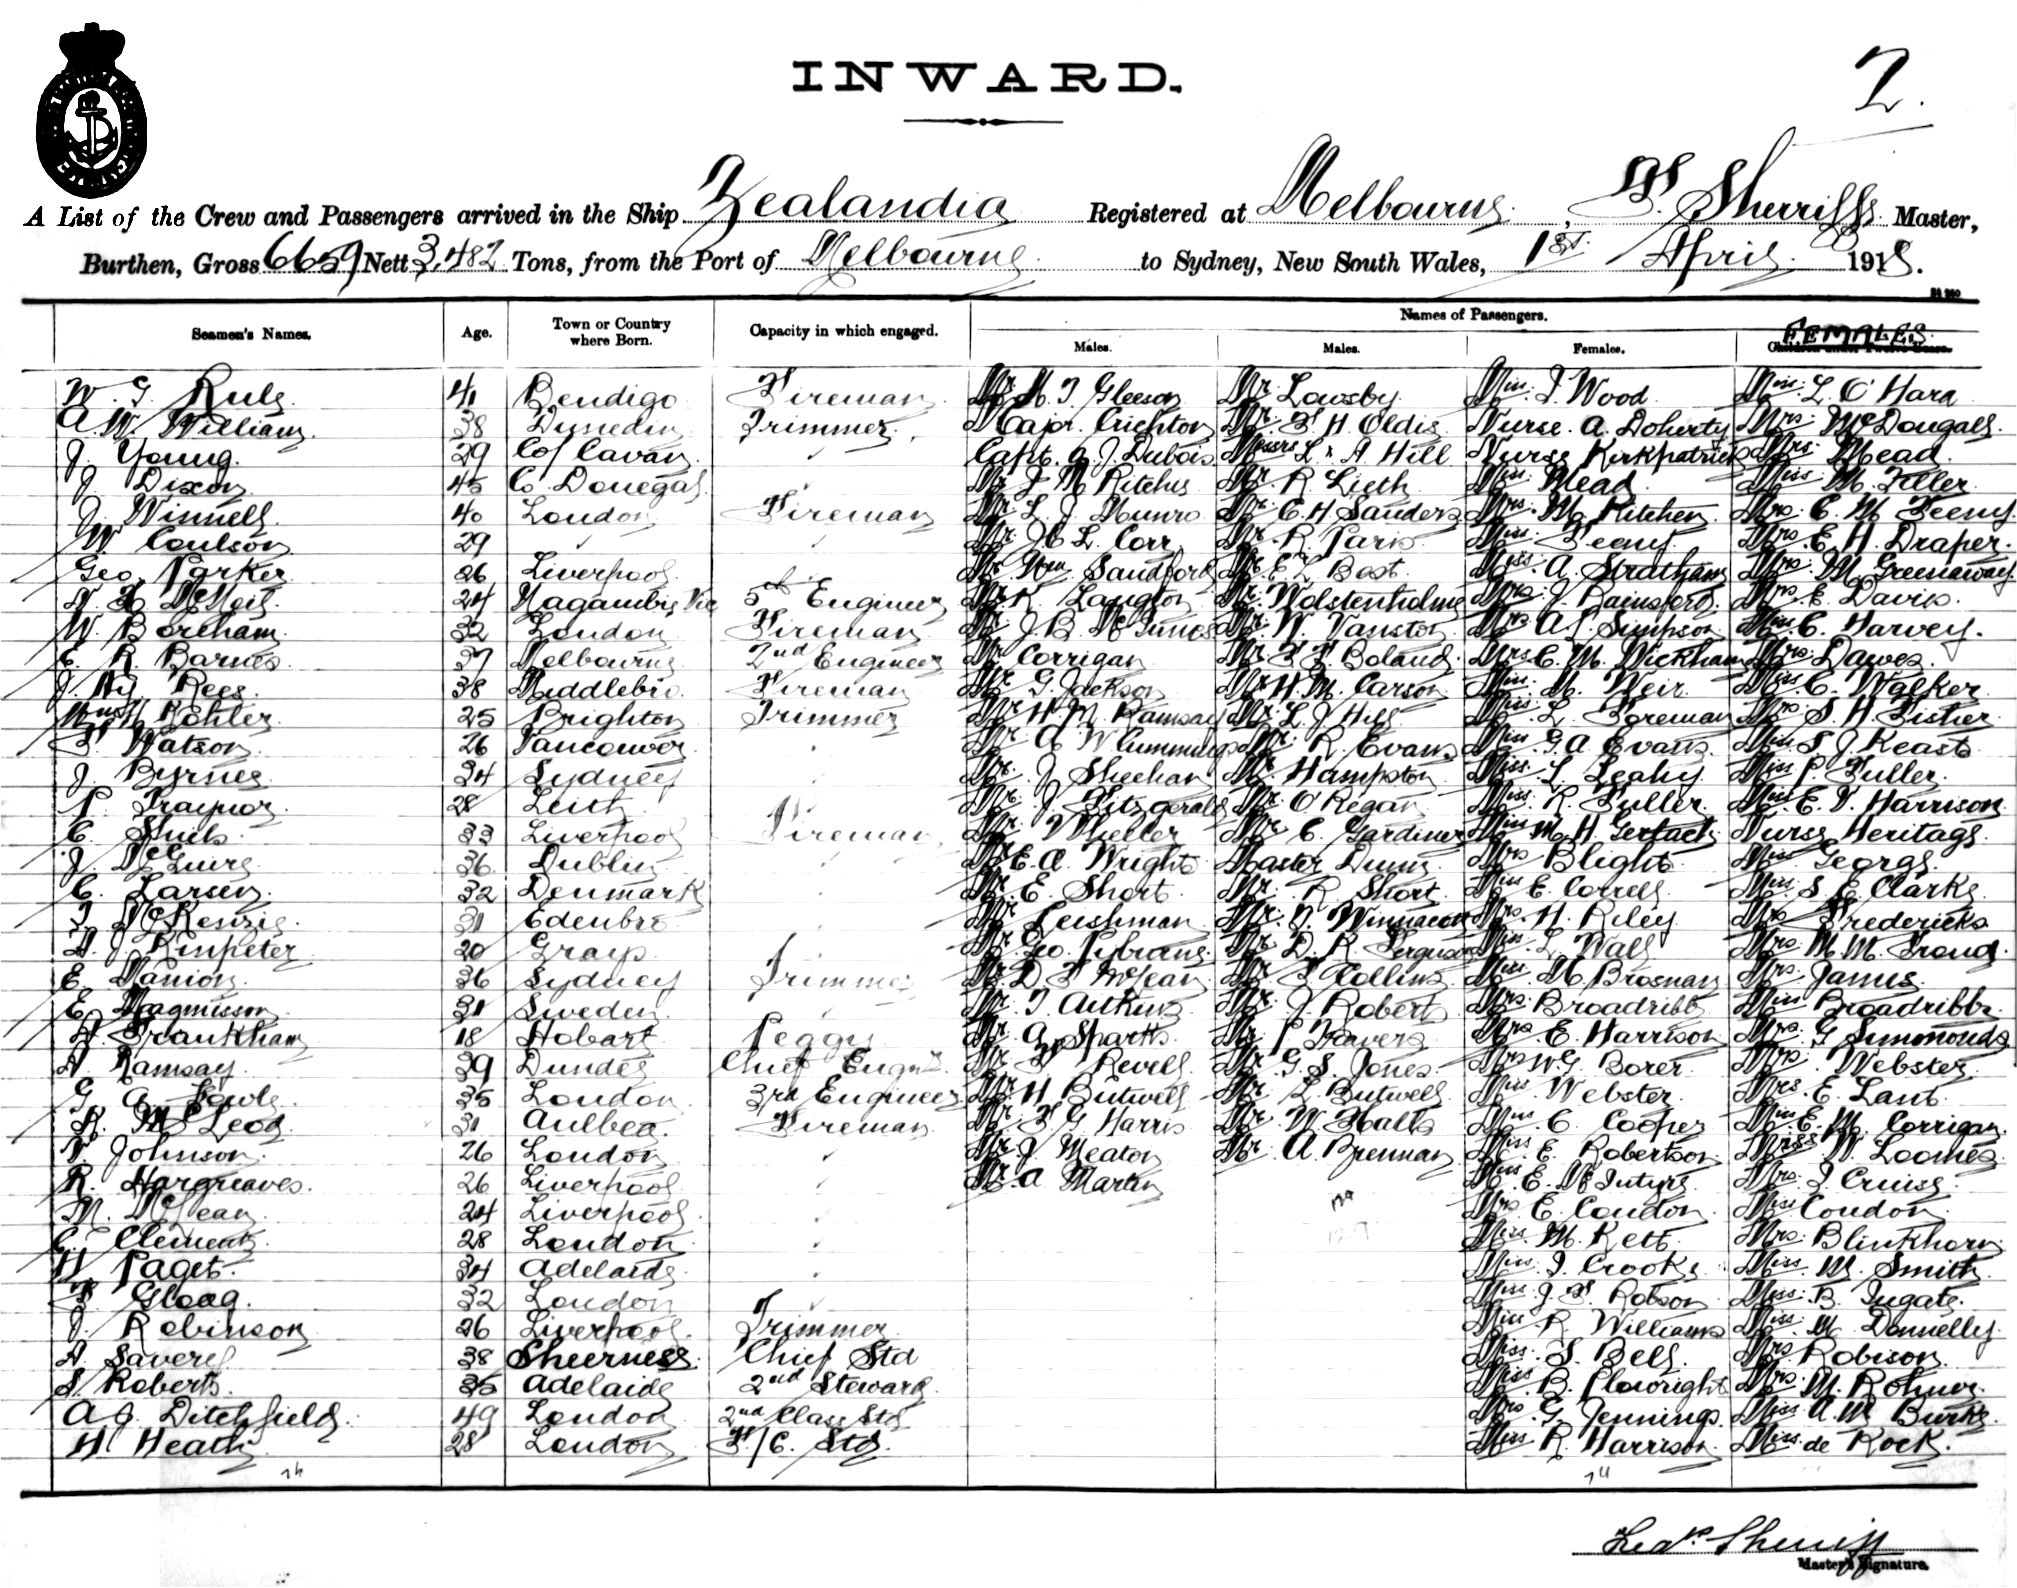 INWARD.
2.
A List of the Crew and Passengers arrived in the Ship Zealandia Registered at Melbourne, F. Sherriff Master,
Burthen, Gross 6659 Nett 3,482 Tons, from the Port of Melbourne to Sydney, New South Wales, 1st April 1918.
Seamen's Names. Age. Town or Country where Born. Capacity in which engaged. Names of Passengers.
Males. Males. Females. FEMALES.
W. G. Rule 41 Bendigo Fireman Mr M. J. Gleeson Mr Lowsby Miss J. Wood Miss L. O'Hara
A. W. William 38 Dunedin Trimmer Major Crichton Mr F. H. Oldis Nurse A. Doherty Mrs McDougall
J. Young 29 Co/ Cavan Capt. A. J. Dubois Messrs L & A Hill Nurse Kirkpatrick Mrs Mead
J. Dixon 45 C. Donegal Mr J M Ritchie Mr R Lieth Miss Mead Miss M.
J. Winnell 40 London Fireman Mr L. J. Munro Mr C. H Sanders Mrs M. Kitchen Mrs C. M Feeny
W Coulson 29 Mr L. Corr Mr R. Paris Miss Feeny Mrs E. H. Draper.
Geo. Parker 26 Liverpool Mr Wm Sandford Mr E L Best Miss A. Stratham Mrs M Greenaway
McNeil 24 Nagambie Vic 5th Engineer Mr R. Langton Mr Wolstenholme Mrs J. Rainsford Mrs E. Davis
W. Boreham 32 London Fireman Mr J. B. McInnes Mr W. Vanston Mrs A L. Simpson Miss C. Harvey.
C. R Barnes 37 Melbourne 2nd Engineer Mr Corrigan Mr F. F. Boland Mrs C. M. Wickham Mrs Dawes
J. Hy Rees 38 Middlebro. Fireman Mr G. Jackson Mr H. M. Carson Miss M. Weir Miss C. Walker
Kohler 25 Brighton Trimmer Mr H. M Ramsay Mr L. J Hill Miss L. Foreman Mrs S. H. Fisher
F. Watson 26 Vancouver Mr A W Cummings Mr R Evans Miss G. A Evans Miss S. J. Keast
J. Byrnes 34 Sydney Mr J Sheehan Mr Hampston Miss L. Leahy Miss P. Fuller.
P. Traynor 28 Leith Mr J. Fitzgerald Mr O'Regan Miss R. Fuller Miss E. V. Harrison
C. 33 Liverpool Fireman Mr Wheller Mr C. Gardiner Miss M. H. Gerlach Nurse Heritage
J. McGuire 36 Dublin Mr E. A. Wright Master Dunn Mrs Blight Miss George
C. Larsen 32 Denmark Mr E. Short Mr R. Short Miss E. Correll Miss S E Clarke
J. McKenzie 31 Edenbro Mr Leishman Mr J. Mrs H. Riley Mrs Fredericks
A. J. Rimpeter 20 Grays Mr Geo. Mr D. R Ferguson Miss L. Wall Mrs M. M. Troup
E. Manion 36 Sydney Trimmer Mr D. F McLean Mr F Collins Miss M Brosnan Mrs James
E. Magnusson 31 Sweden Mr J. Aitkens Mr J. Robert Mrs Broadribb Miss Broadribb
A Frankham 18 Hobart Peggy Mr A Sparks Mr P Travers Mrs E. Harrison Mrs G Simmonds
A. Ramsay 39 Dundee Chief Engnr. Mr F Revell Mr G. S. Jones Mrs W. G Borer Mrs Webster
G. A. Fowle 35 London 3rd Engineer Mr H Butwell Mr L. Butwell Miss Webster Mrs E. Lant
R. McLeod 31 Fireman Mr F G Harris Mr W. Halls Miss C. Cooper Miss E. M. Corrigan
V. Johnson 26 London Mr J. Meaton Mr A. Brennan Miss E. Robertson W. Loomes
R. Hargreaves 26 Liverpool Mr A Martin Miss E. McIntyre Mrs J Cruise
M. McLean 24 Liverpool Mrs E. Condon Miss Condon
C. Clements 28 London Miss M. Kett Mrs Blinkhorn
H Paget. 34 Adelaide Miss J. Crooks Miss M. Smith
F Gloag 32 London Miss J. F. Robson Miss B. Tugate
J. Robinson 26 Liverpool Trimmer Miss R Williams Miss M. Donnelly
A. Savery 38 Sheerness Chief Std Miss S. Bell Mrs Robison
S. Roberts 35 Adelaide 2nd Steward Miss B. Plowright Mrs M. Rohner
A. J. Ditchfield 49 London 2nd Class Std Mrs G. Jennings Miss A. M Burke
H. Heath 28 London F/C. Std. Miss R. Harrison Miss de Rock
Master's Signature.